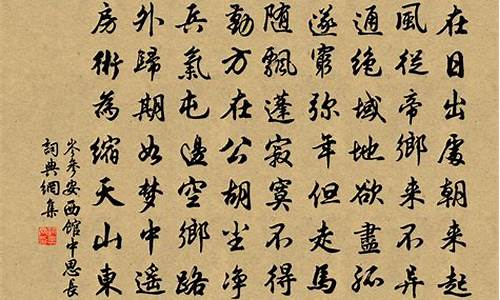 在日出處朝來起
風從帝鄉來不異
通絕域地欲盡孤
遂窮彌年但走馬
隨飄蓬寂寞不得
勤方在公胡尘净
兵氣屯邊空鄉路
外歸期如夢中遙
房術為縮天山東
岑參安西館中思長
詞典網集